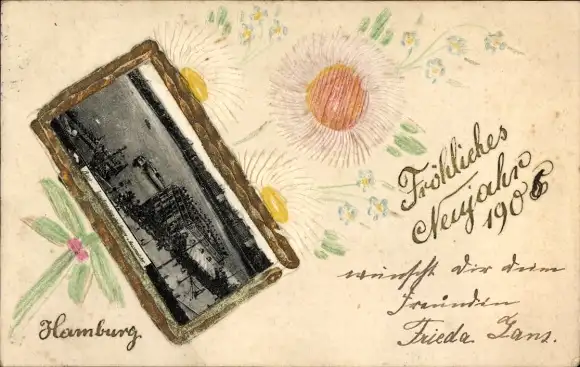 Fröhliches
Neujahr
1906
wünscht dir deine
Freundin
Frieda Ganz.
Hamburg